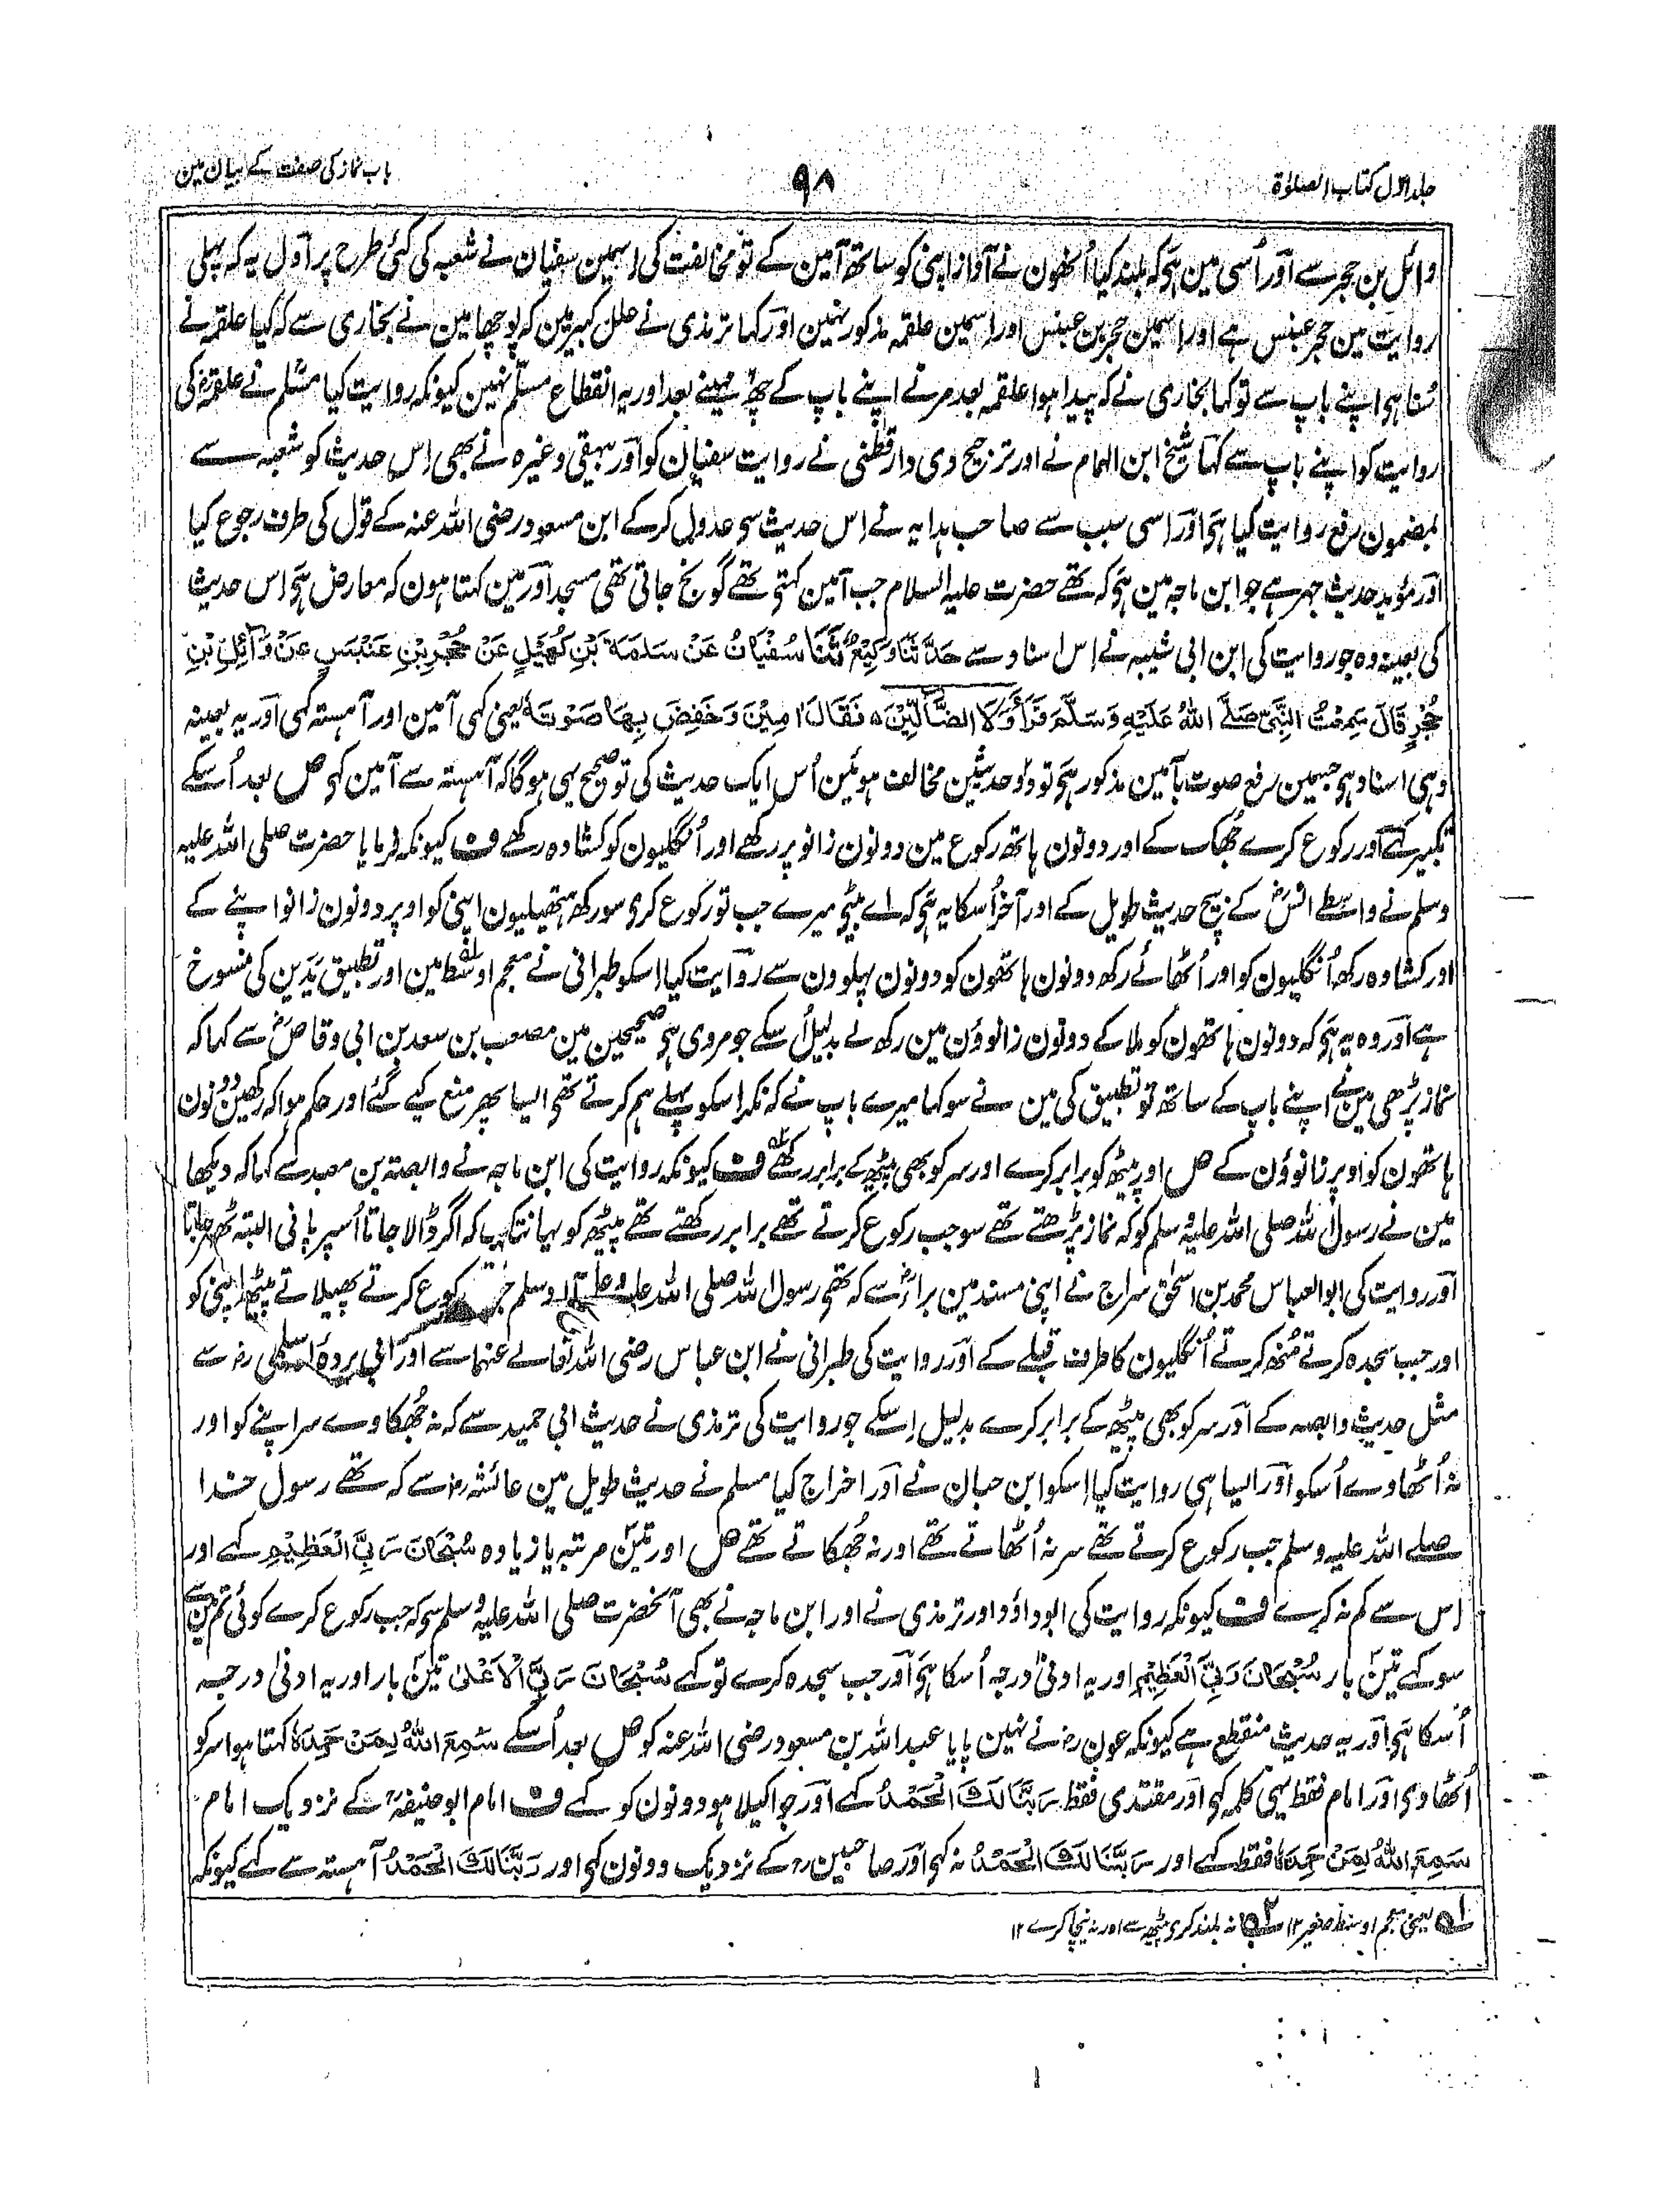 جلد اول کتاب الصلوٰۃ
۹۸
باب نماز کی صفت کے بیان مین
وائل بن حجر سے اور اُسی مین ہی کہ بلند کیا اُنھون نے آواز اپنی کو ساتھ آمین کے تو مخالفت کی اسمین سفیان نے شعبہ کی کئی طرح پر اول یہ کہ پہلی
روایت مین حجر عنبس ہے اور اسمین حجر بن عنبس اور اسمین علقمہ مذکور نہین اور کہا ترمذی نے علل کبیر مین کہ پوچھا مین نے بخاری سے کہ کیا علقمہ نے
سُنا ہی اپنے باپ سے تو کہا بخاری نے کہ پیدا ہوا علقمہ بعد مرنے اپنے باپ کے چھ مہینے بعد اور یہ انقطاع مسلّم نہین کیونکہ روایت کیا مسلم نے علقمہ کی
روایت کو اپنے باپ سے کہا شیخ ابن الہمام نے اور ترجیح دی دارقطنی نے روایت سفیان کو اور بیہقی وغیرہ نے بھی اِس حدیث کو شعبہ سے
بمضمون رفع روایت کیا ہی اور اسی سبب سے صاحب ہدایہ نے اِس حدیث سی عدول کرکے ابن مسعود رضی اللہ عنہ کے قول کی طرف رجوع کیا
اور مؤید حدیث جہر ہے جو ابن ماجہ مین ہی کہ تھے حضرت علیہ السلام جب آمین کہتی تھے گونج جاتی تھی مسجد اور مین کہتا ہون کہ معارض ہی اس حدیث
کی بعینہ وہ جو روایت کی ابن ابی شیبہ نے اِس اسناد سے حَدَّثَنَا وَكِيْعٌ ثَنَا سُفْيَانُ عَنْ سَلَمَةَ بْنِ كُهَيْلٍ عَنْ حُجْرِ بْنِ عَنْبَسٍ عَنْ وَآئِلِ بْنِ
حُجْرٍ قَالَ سَمِعْتُ النَّبِيَّ صَلَّے اللهُ عَلَيْهِ وَسَلَّمَ قَرَأَ وَلَا الضَّالِّيْنَ ہ فَقَالَ اٰمِيْنَ وَخَفِضَ بِهَا صَوْتَهٗ یعنی کہی آمین اور آہستہ کہی اور یہ بعینہ
وہی اسناد ہی جسمین رفع صوت بآمین مذکور ہی تو دو حدیثین مخالف ہوئین اُس ایک حدیث کی تو صحیح یہی ہوگا کہ آہستہ سے آمین کہی ص بعد اُسکے
تکبیر کہے اور رکوع کرے جُھک کے اور دونون ہاتھ رکوع مین دونون زانو پر رکھے اور اُنگلیون کو کشادہ رکھے ف کیونکہ فرمایا حضرت صلی اللہ علیہ
وسلم نے واسطے انس رض کے بیچ حدیث طویل کے اور آخر اُسکا یہ ہی کہ اے بیٹی میرے جب تو رکوع کری سو رکھ ہتھیلیون اپنی کو اوپر دونون زانو اپنے کے
اور کشادہ رکھ اُنگلیون کو اور اُٹھائے رکھ دونون ہاتھون کو دونون پہلوون سے روایت کیا اسکو طبرانی نے معجم اوسط مین اور تطبیق یدین کی منسوخ
ہے اور وہ یہ ہی کہ دونون ہاتھون کو ملا کے دونون زانوؤن مین رکھ لے بدلیل اُسکے جو مروی ہی صحیحین مین مصعب بن سعد بن ابی وقاص رض سے کہا کہ
نماز پڑھی مین نے اپنے باپ کے ساتھ تو تطبیق کی مین نے سو کہا میرے باپ نے کہ نکر اسکو پہلے ہم کرتے تھی ایسا پھر منع کیے گئے اور حکم ہوا کہ رکھین دونون
ہاتھون کو اوپر زانوؤن کے ص اور پیٹھ کو برابر کرے اور سر کو بھی پیٹھ کے برابر رکھے ف کیونکہ روایت کی ابن ماجہ نے وابصتہ بن معبد سے کہا کہ دیکھا
مین نے رسول اللہ صلی اللہ علیہ وسلم کو کہ نماز پڑھتے تھے سو جب رکوع کرتے تھے برابر رکھتے تھے پیٹھ کو یہانتک کہ اگر ڈالا جاتا اُسپر پانی البتہ ٹھہر جاتا
اور روایت کی ابو العباس محمد بن اسحٰق سراج نے اپنی مسند مین براء رض سے کہ تھی رسول اللہ صلی اللہ علیہ وعلی آلہ وسلم جب رکوع کرتے پھیلاتے پیٹھ اپنی کو
اور جب سجدہ کرتے مُنھ کرتے اُنگلیون کا طرف قبلے کے اور روایت کی طبرانی نے ابن عباس رضی اللہ تعالے عنہما سے اور ابی بردہ اسلمی رض سے
مثل حدیث وابصہ کے اور سر کو بھی پیٹھ کے برابر کرے بدلیل اِسکے جو روایت کی ترمذی نے حدیث ابی حمید سے کہ نہ جُھکا وے سر اپنے کو اور
نہ اُٹھاوے اُسکو اور ایسا ہی روایت کیا اِسکو ابن حبان نے اور اخراج کیا مسلم نے حدیث طویل مین عائشہ رض سے کہ تھے رسول خدا
صلے اللہ علیہ وسلم جب رکوع کرتے تھے سر نہ اُٹھاتے تھے اور نہ جُھکاتے تھے ص اور تین مرتبہ یا زیادہ سُبْحَانَ رَبِّیَ الْعَظِيْمِ کہے اور
اس سے کم نہ کرے ف کیونکہ روایت کی ابوداؤد اور ترمذی نے اور ابن ماجہ نے بھی آنحضرت صلی اللہ علیہ وسلم سی کہ جب رکوع کرے کوئی تم مین سے
سو کہے تین بار سُبْحَانَ رَبِّیَ الْعَظِيْمِ اور یہ ادنیٰ درجہ اُسکا ہی اور جب سجدہ کرے تو کہے سُبْحَانَ رَبِّیَ الْاَعْلیٰ تین بار اور یہ ادنیٰ درجہ
اُسکا ہی اور یہ حدیث منقطع ہے کیونکہ عون رض نے نہین پایا عبد اللہ بن مسعود رضی اللہ عنہ کو ص بعد اُسکے سَمِعَ اللهُ لِمَنْ حَمِدَهٗ کہتا ہوا سر کو
اُٹھاوی اور امام فقط یہی کلمہ کہی اور مقتدی فقط رَبَّنَا لَكَ الْحَمْدُ کہے اور جو اکیلا ہو دونون کو کہے ف امام ابو حنیفہ رح کے نزدیک امام
سَمِعَ اللهُ لِمَنْ حَمِدَهٗ فقط کہے اور رَبَّنَا لَكَ الْحَمْدُ نہ کہی اور صاحبین رح کے نزدیک دونون کہی اور رَبَّنَا لَكَ الْحَمْدُ آہستہ سے کہے کیونکہ
۱ہ یعنی معجم اوسط صغیر ۱۲ ۲ہ نہ بلند کری پیٹھ سے اور نہ نیچا کرے ۱۲